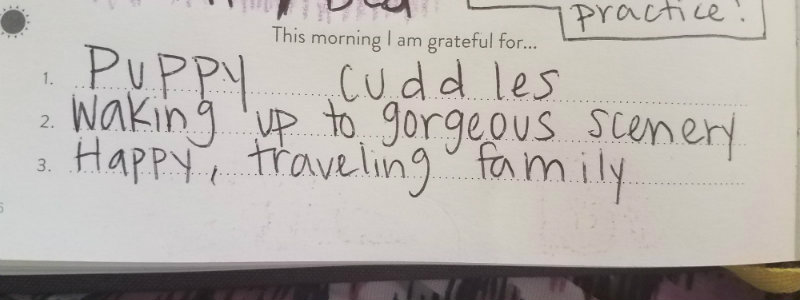 practice!
This morning I am grateful for...
1. Puppy cuddles
2. Waking up to gorgeous scenery
3. Happy, traveling family